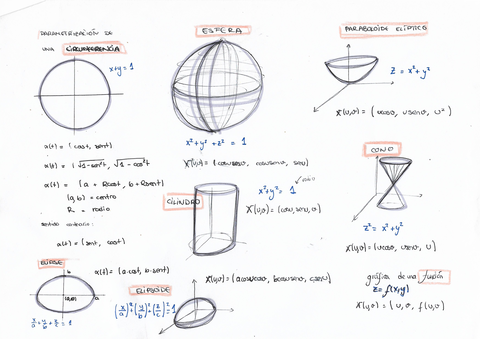 PARAMETRIZACIÓN DE
UNA CIRCUNFERENCIA
x+y=1
α(t) = (cost, sent)
α(t) = (√1-sen²t, √1-cos²t
α(t) = (a + Rcost, b + Rsent)
(a,b) = centro
R = radio
sentido contrario:
α(t) = (sent, cost)
ELIPSE
b
a
α(t) = (a·cost, b·sent)
ESFERA
x² + y² + z² = 1
CILINDRO
x²+y² = 1
radio
X(u,v) = (cosu, senu, v)
ELIPSOIDE
(x/a)² + (y/b)² + (z/c)² = 1
PARABOLOIDE ELÍPTICO
z = x² + y²
X(u,v) = (ucosv, usenv, u²)
CONO
z² = x² + y²
X(u,v) = (ucosv, usenv, u)
gráfica de una función
z = f(x,y)
X(u,v) = (u, v, f(u,v))